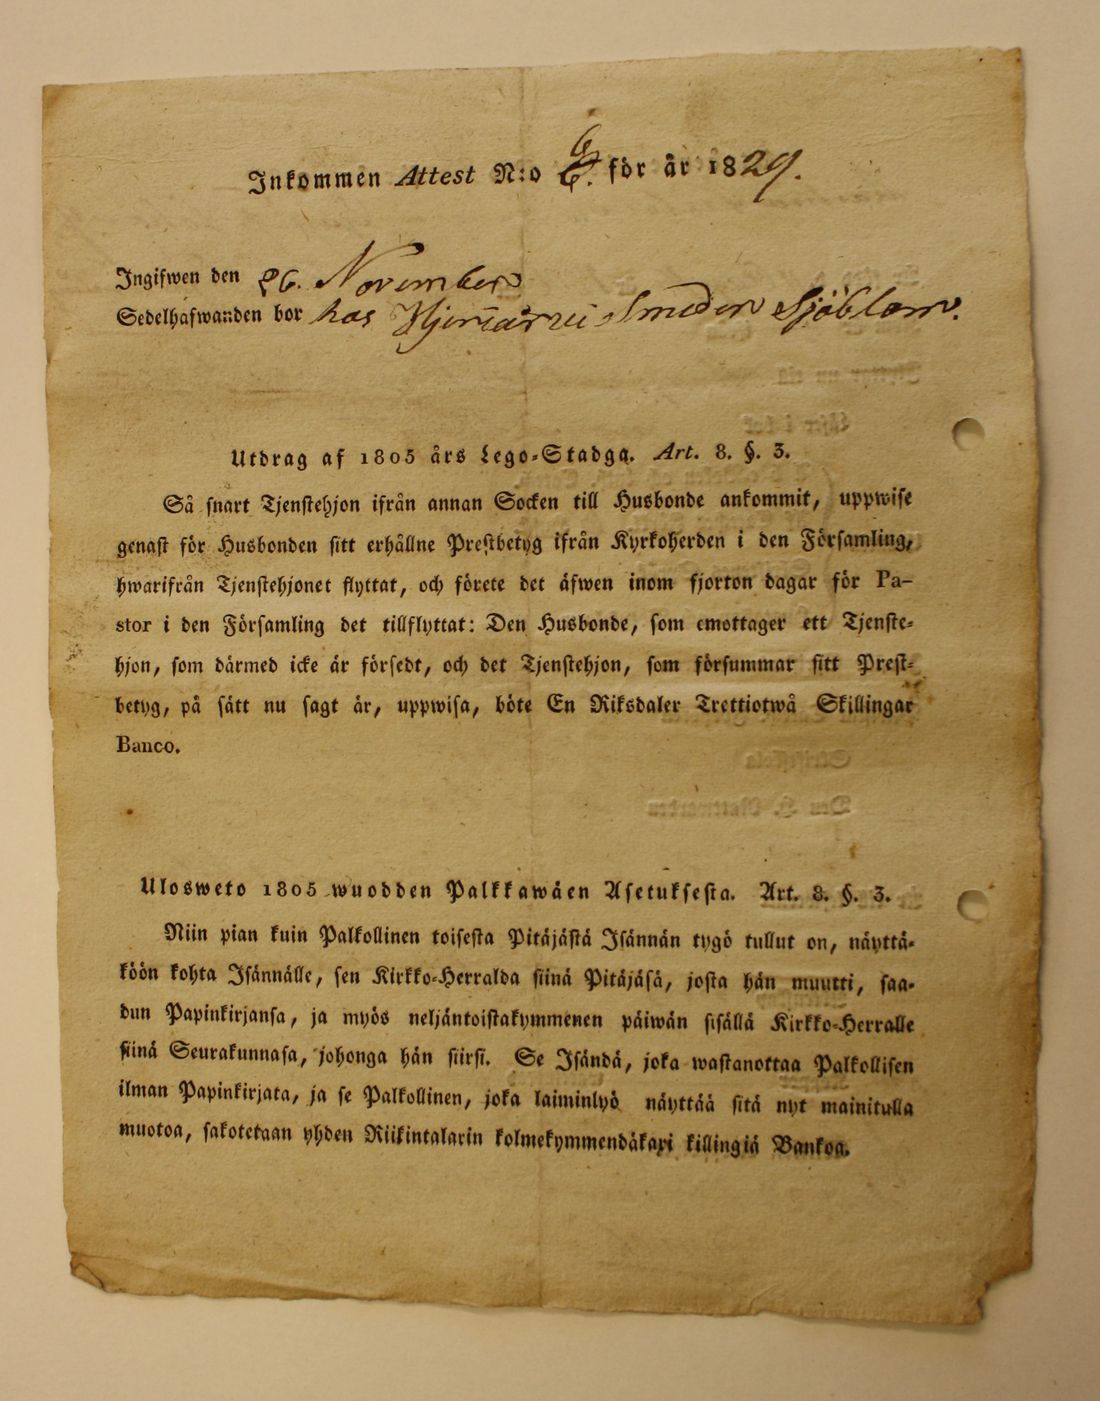 Inkommen Attest N:o 6. för år 1829.
Ingifwen den 26. November
Sedelhafwanden bor hos Smeden Sjöblom.
Utdrag af 1805 års Lego-Stadga. Art. 8. §. 3.
Så snart Tjenstehjon ifrån annan Socken till Husbonde ankommit, uppwise
genast för Husbonden sitt erhållne Prestbetyg ifrån Kyrkoherden i den Församling,
hwarifrån Tjenstehjonet flyttat, och förete det äfwen inom fjorton dagar för Pa-
stor i den Församling det tillflyttat: Den Husbonde, som emottager ett Tjenste-
hjon, som därmed icke är försedt, och det Tjenstehjon, som försummar sitt Prest-
betyg, på sätt nu sagt är, uppwisa, böte En Riksdaler Trettiotwå Skillingar
Banco.
Ulosweto 1805 wuodden Palkkawäen Asetuksesta. Art. 8. §. 3.
Niin pian kuin Palkollinen toisesta Pitäjästä Isännän tygö tullut on, näyttä-
köön kohta Isännälle, sen Kirkko-Herralda siinä Pitäjäsä, josta hän muutti, saa-
dun Papinkirjansa, ja myös neljäntoistakymmenen päiwän sisällä Kirkko-Herralle
siinä Seurakunnasa, johonga hän siirsi. Se Isändä, joka wastanottaa Palkollisen
ilman Papinkirjata, ja se Palkollinen, joka laiminlyö näyttää sitä nyt mainitulla
muotoa, sakotetaan yhden Riikintalarin kolmekymmendäkaxi killingiä Bankoa.